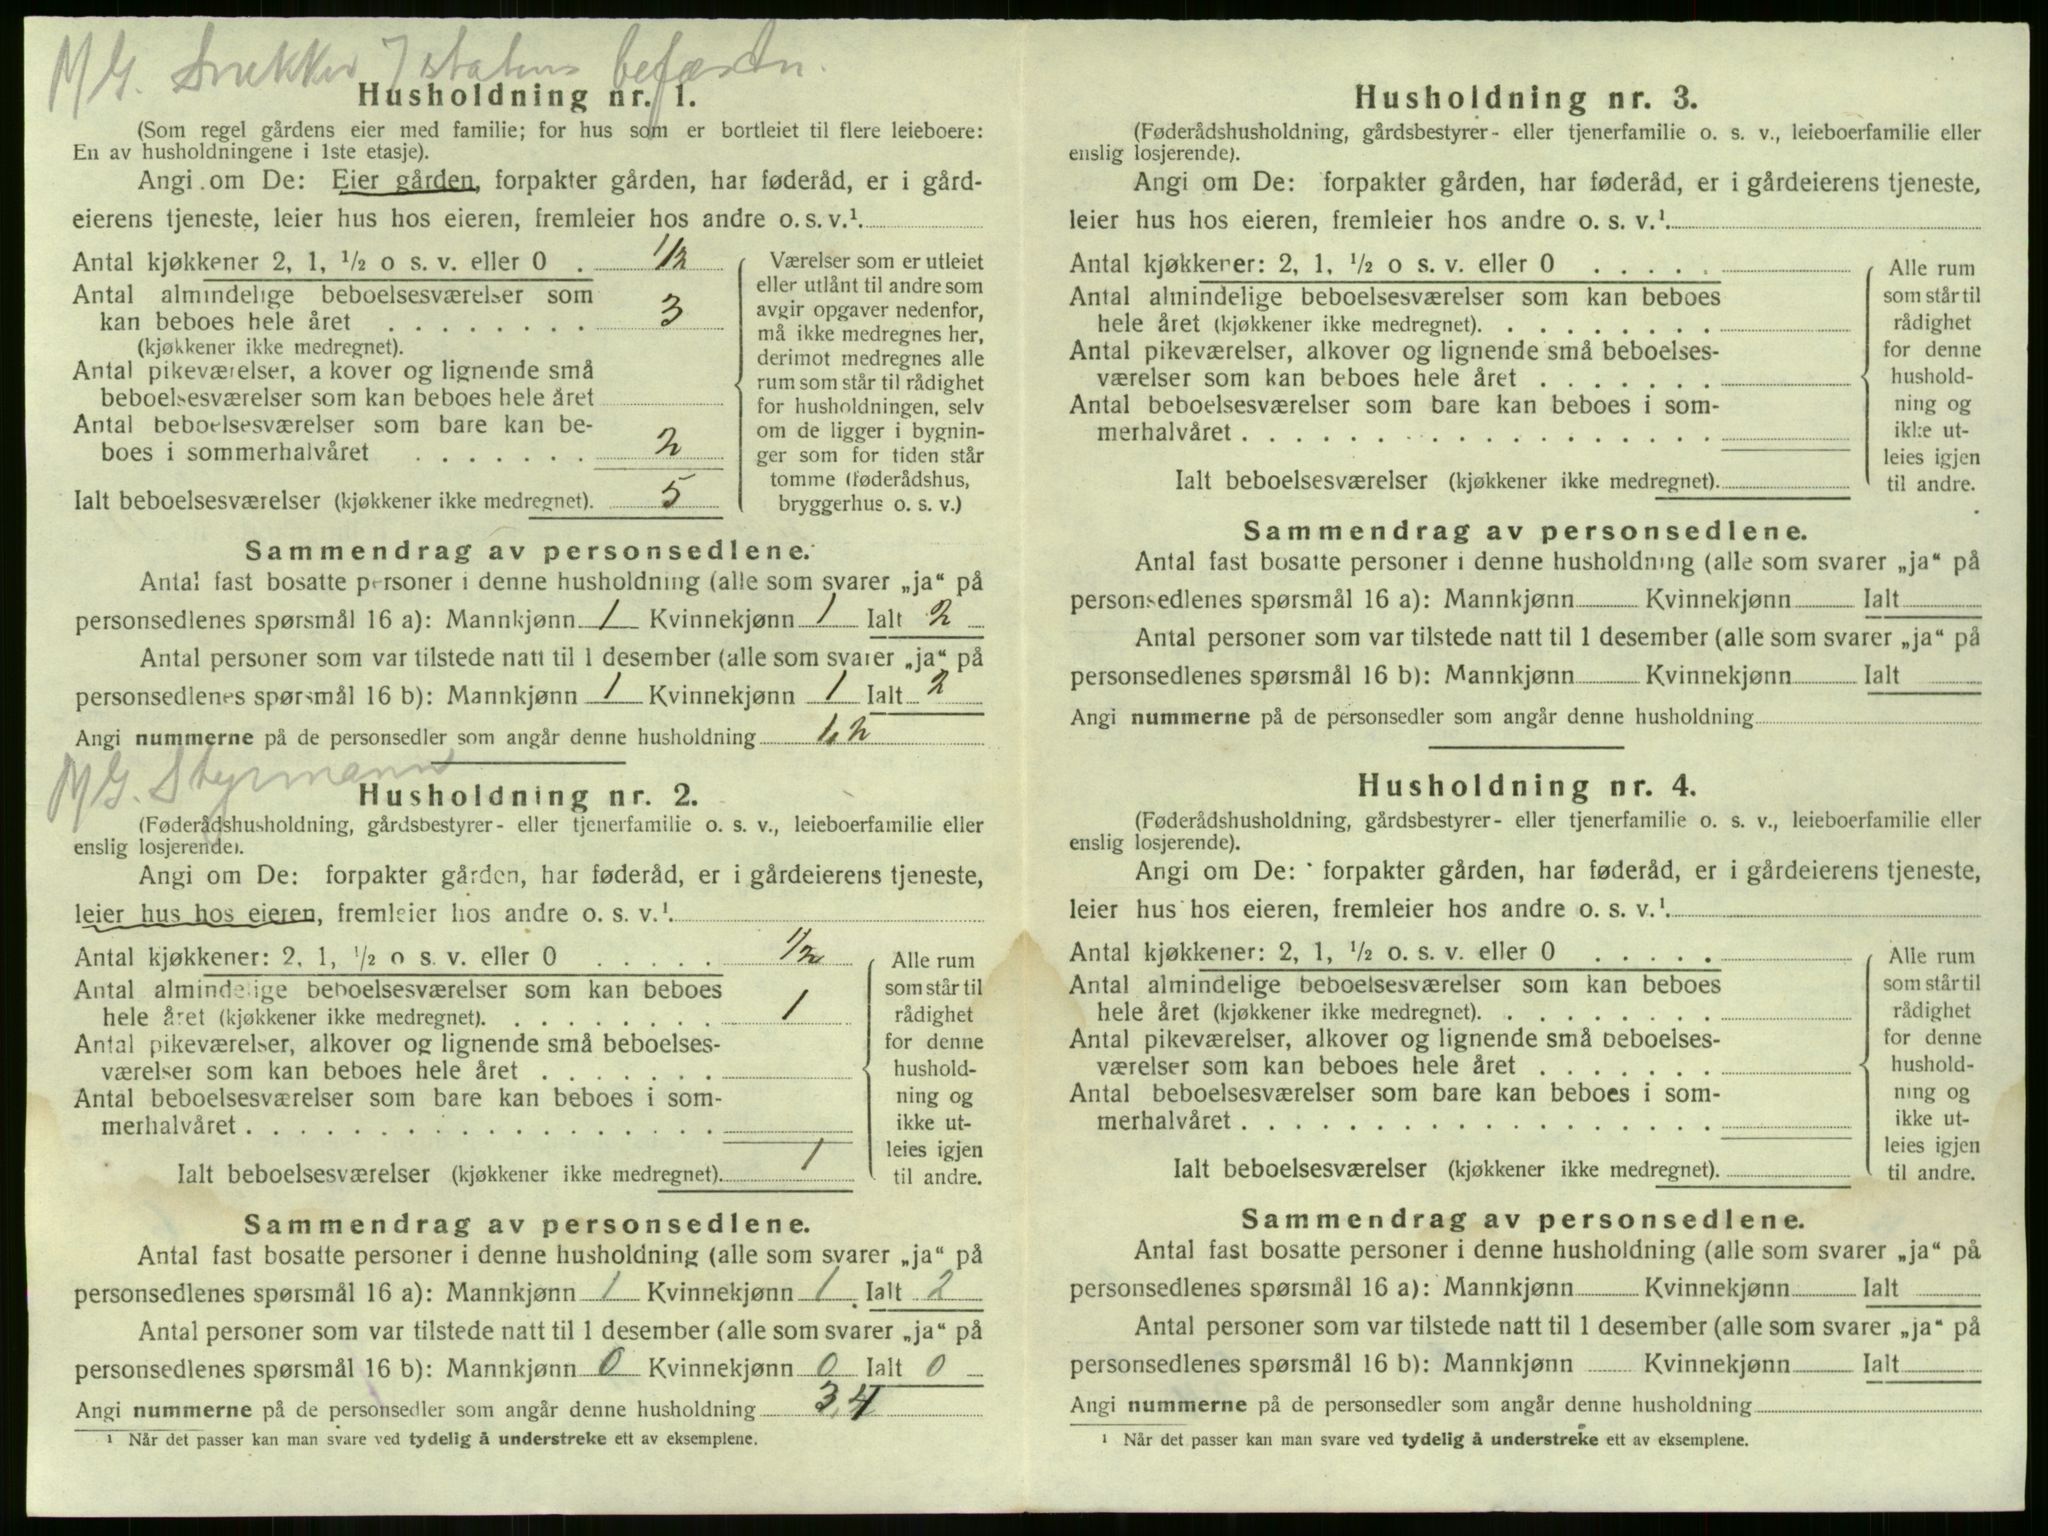 M G. Snekker I statens befæstn.
Husholdning nr. 1.
(Som regel gårdens eier med familie; for hus som er bortleiet til flere leieboere:
En av husholdningene i 1ste etasje).
Angi om De: Eier gården, forpakter gården, har føderåd, er i gård-
eierens tjeneste, leier hus hos eieren, fremleier hos andre o. s. v.¹.
Antal kjøkkener 2, 1, ½ o s. v. eller 0 . 1/2
Antal almindelige beboelsesværelser som
kan beboes hele året . . . . . . . . 3
(kjøkkener ikke medregnet).
Antal pikeværelser, a kover og lignende små
beboelsesværelser som kan beboes hele året
Antal beboelsesværelser som bare kan be-
boes i sommerhalvåret . . . . . . . 2
Ialt beboelsesværelser (kjøkkener ikke medregnet). 5
Værelser som er utleiet
eller utlånt til andre som
avgir opgaver nedenfor,
må ikke medregnes her,
derimot medregnes alle
rum som står til rådighet
for husholdningen, selv
om de ligger i bygnin-
ger som for tiden står
tomme (føderådshus,
bryggerhus o. s. v.)
Sammendrag av personsedlene.
Antal fast bosatte personer i denne husholdning (alle som svarer „ja“ på
personsedlenes spørsmål 16 a): Mannkjønn 1 Kvinnekjønn 1 Ialt 2
Antal personer som var tilstede natt til 1 desember (alle som svarer „ja“ på
personsedlenes spørsmål 16 b): Mannkjønn 1 Kvinnekjønn 1 Ialt 2
Angi nummerne på de personsedler som angår denne husholdning 1, 2
M G. Styrmann
Husholdning nr. 2.
(Føderådshusholdning, gårdsbestyrer- eller tjenerfamilie o. s. v., leieboerfamilie eller
enslig losjerende).
Angi om De: forpakter gården, har føderåd, er i gårdeierens tjeneste,
leier hus hos eieren, fremleier hos andre o. s. v.¹.
Antal kjøkkener: 2, 1, ½ o s. v. eller 0 . . . . . 1/2
Antal almindelige beboelsesværelser som kan beboes
hele året (kjøkkener ikke medregnet). . . . . . . . . 1
Antal pikeværelser, alkover og lignende små beboelses-
værelser som kan beboes hele året . . . . . . .
Antal beboelsesværelser som bare kan beboes i som-
merhalvåret . . . . . . . . . . . . . . . . . .
Ialt beboelsesværelser (kjøkkener ikke medregnet). 1
Alle rum
som står til
rådighet
for denne
hushold-
ning og
ikke ut-
leies igjen
til andre.
Sammendrag av personsedlene.
Antal fast bosatte personer i denne husholdning (alle som svarer „ja“ på
personsedlenes spørsmål 16 a): Mannkjønn 1 Kvinnekjønn 1 Ialt 2
Antal personer som var tilstede natt til 1 desember (alle som svarer „ja“ på
personsedlenes spørsmål 16 b): Mannkjønn 0 Kvinnekjønn 0 Ialt 0
Angi nummerne på de personsedler som angår denne husholdning 3, 4
¹ Når det passer kan man svare ved tydelig å understreke ett av eksemplene.
Husholdning nr. 3.
(Føderådshusholdning, gårdsbestyrer- eller tjenerfamilie o. s. v., leieboerfamilie eller
enslig losjerende).
Angi om De: forpakter gården, har føderåd, er i gårdeierens tjeneste,
leier hus hos eieren, fremleier hos andre o. s. v.¹.
Antal kjøkkener: 2, 1, ½ o s. v. eller 0 . . . . .
Antal almindelige beboelsesværelser som kan beboes
hele året (kjøkkener ikke medregnet). . . . . . . . .
Antal pikeværelser, alkover og lignende små beboelses-
værelser som kan beboes hele året . . . . . . .
Antal beboelsesværelser som bare kan beboes i som-
merhalvåret . . . . . . . . . . . . . . . . . .
Ialt beboelsesværelser (kjøkkener ikke medregnet).
Alle rum
som står til
rådighet
for denne
hushold-
ning og
ikke ut-
leies igjen
til andre.
Sammendrag av personsedlene.
Antal fast bosatte personer i denne husholdning (alle som svarer „ja“ på
personsedlenes spørsmål 16 a): Mannkjønn Kvinnekjønn Ialt
Antal personer som var tilstede natt til 1 desember (alle som svarer „ja“ på
personsedlenes spørsmål 16 b): Mannkjønn Kvinnekjønn Ialt
Angi nummerne på de personsedler som angår denne husholdning
Husholdning nr. 4.
(Føderådshusholdning, gårdsbestyrer- eller tjenerfamilie o. s. v., leieboerfamilie eller
enslig losjerende).
Angi om De: forpakter gården, har føderåd, er i gårdeierens tjeneste,
leier hus hos eieren, fremleier hos andre o. s. v.¹.
Antal kjøkkener: 2, 1, ½ o. s. v. eller 0 . . . . .
Antal almindelige beboelsesværelser som kan beboes
hele året (kjøkkener ikke medregnet). . . . . . . . .
Antal pikeværelser, alkover og lignende små beboelses-
værelser som kan beboes hele året . . . . . . .
Antal beboelsesværelser som bare kan beboes i som-
merhalvåret . . . . . . . . . . . . . . . . . .
Ialt beboelsesværelser (kjøkkener ikke medregnet).
Alle rum
som står til
rådighet
for denne
hushold-
ning og
ikke ut-
leies igjen
til andre.
Sammendrag av personsedlene.
Antal fast bosatte personer i denne husholdning (alle som svarer „ja“ på
personsedlenes spørsmål 16 a): Mannkjønn Kvinnekjønn Ialt
Antal personer som var tilstede natt til 1 desember (alle som svarer „ja“ på
personsedlenes spørsmål 16 b): Mannkjønn Kvinnekjønn Ialt
Angi nummerne på de personsedler som angår denne husholdning
¹ Når det passer kan man svare ved tydelig å understreke ett av eksemplene.